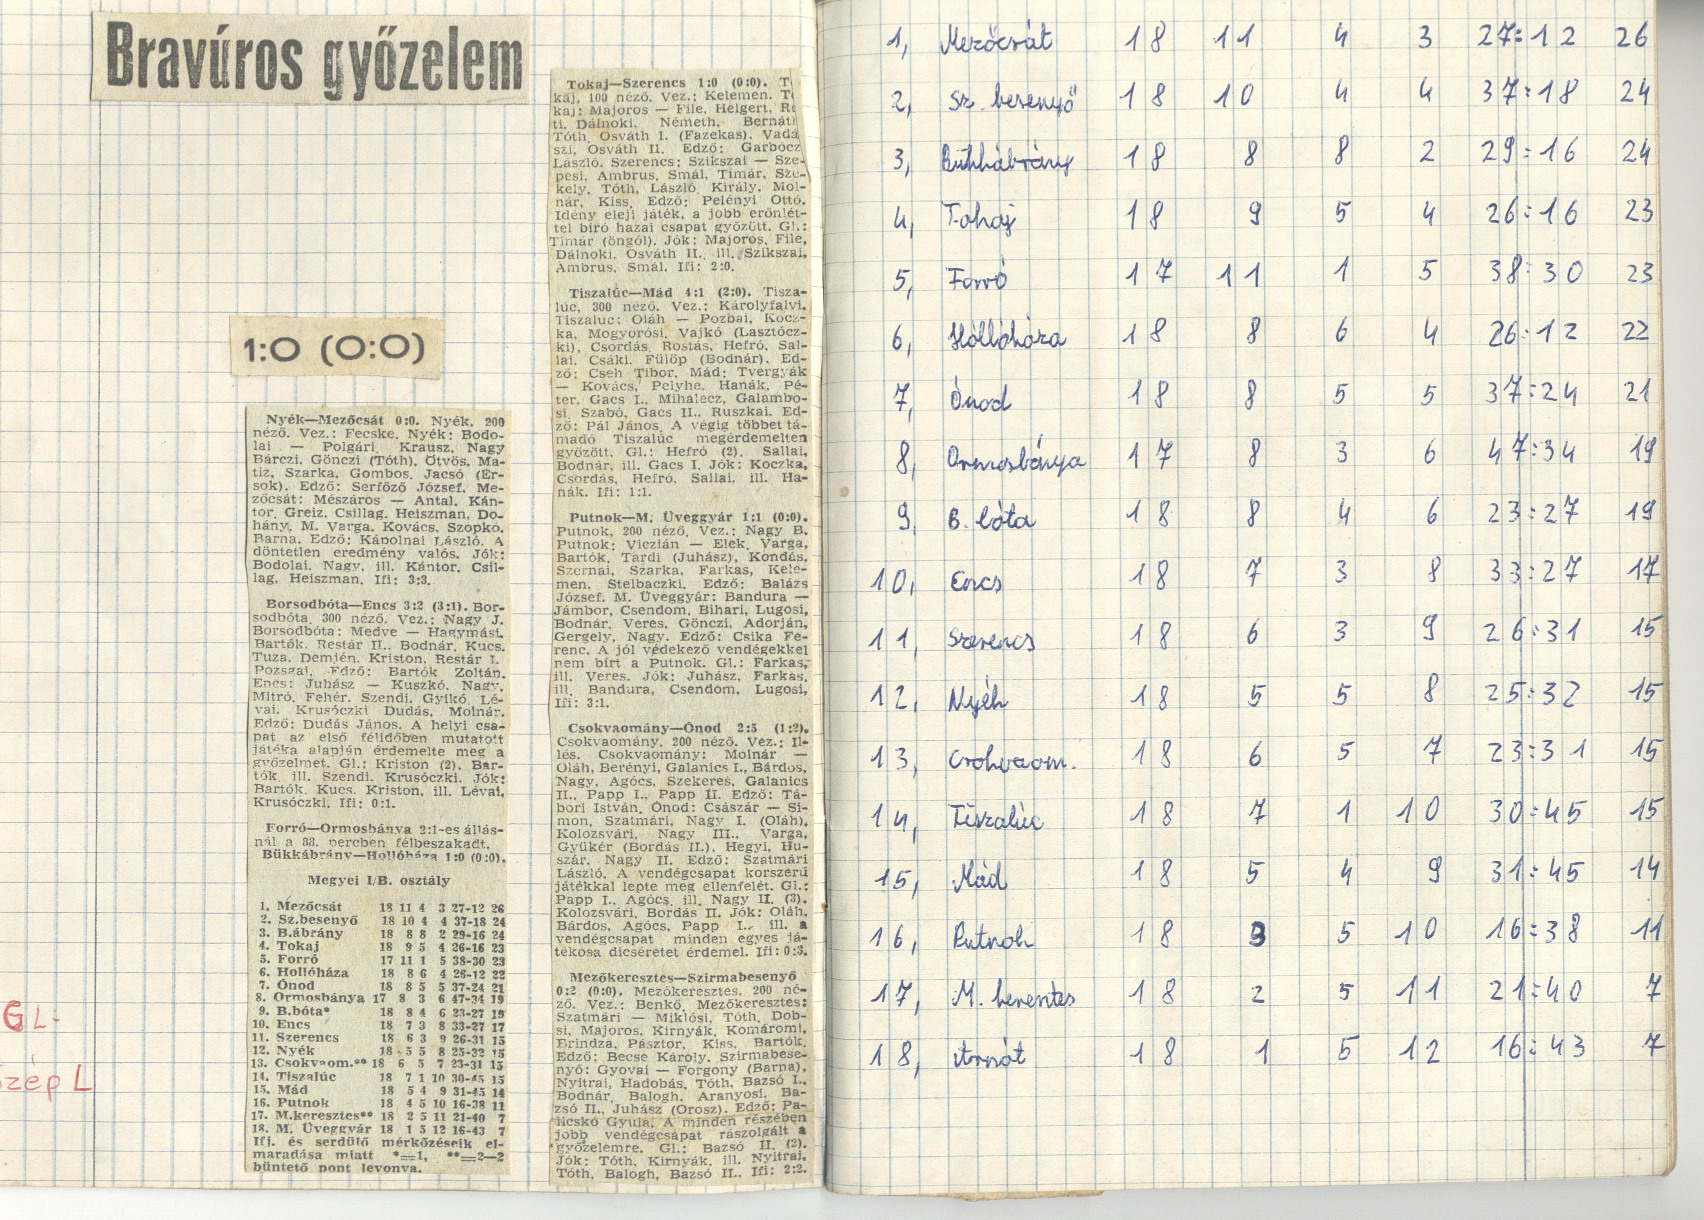 Bravúros győzelem
1:0 (0:0)
Nyék—Mezőcsát 0:0. Nyék, 200
néző. Vez.: Fecske. Nyék: Bodo-
lai — Polgári, Krausz, Nagy
Bárczi, Gönczi (Tóth), Ötvös, Ma-
tiz, Szarka, Gombos, Jacsó (Ér-
sok). Edző: Serfőző József. Me-
zőcsát: Mészáros — Antal, Kán-
tor, Greiz, Csillag, Heiszman, Do-
hány, M. Varga, Kovács, Szopkó,
Barna. Edző: Kápolnai László. A
döntetlen eredmény valós. Jók:
Bodolai, Nagy, ill. Kántor, Csil-
lag, Heiszman. Ifi: 3:3.
Borsodbóta—Encs 3:2 (3:1). Bor-
sodbóta, 300 néző. Vez.: Nagy J.
Borsodbóta: Medve — Hagymási,
Bartók, Restár II., Bodnár, Kucs,
Tuza, Demjén, Kriston, Restár I.,
Pozsgai. Edző: Bartók Zoltán.
Encs: Juhász — Kuszkó, Nagy,
Mitró, Fehér, Szendi, Gyikó, Lé-
vai, Krusóczki Dudás, Molnár.
Edző: Dudás János. A helyi csa-
pat az első félidőben mutatott
játéka alapján érdemelte meg a
győzelmet. Gl.: Kriston (2), Bar-
tók, ill. Szendi, Krusóczki. Jók:
Bartók, Kucs, Kriston, ill. Lévai,
Krusóczki. Ifi: 0:1.
Forró—Ormosbánya 2:1-es állás-
nál a 88. percben félbeszakadt.
Bükkábrány—Hollóháza 1:0 (0:0).
Megyei I/B. osztály
1. Mezőcsát 18 11 4 3 27-12 26
2. Sz.besenyő 18 10 4 4 37-18 24
3. B.ábrány 18 8 8 2 29-16 24
4. Tokaj 18 9 5 4 26-16 23
5. Forró 17 11 1 5 38-30 23
6. Hollóháza 18 8 6 4 26-12 22
7. Ónod 18 8 5 5 37-24 21
8. Ormosbánya 17 8 3 6 47-34 19
9. B.bóta* 18 8 4 6 23-27 19
10. Encs 18 7 3 8 33-27 17
11. Szerencs 18 6 3 9 26-31 15
12. Nyék 18 5 5 8 25-32 15
13. Csokvaom.** 18 6 5 7 23-31 15
14. Tiszalúc 18 7 1 10 30-45 15
15. Mád 18 5 4 9 31-45 14
16. Putnok 18 4 5 10 16-38 11
17. M.keresztes** 18 2 5 11 21-40 7
18. M. Üveggyár 18 1 5 12 16-43 7
Ifj. és serdülő mérkőzéseik el-
maradása miatt *=1, **=2—2
büntető pont levonva.
GL.
szép L
Tokaj—Szerencs 1:0 (0:0).
kaj, 100 néző. Vez.: Kelemen.
kaj: Majoros — File, Helgert,
ti, Dálnoki, Németh, Bernáti
Tóth, Osváth I. (Fazekas), Vadá
szi, Osváth II. Edző: Garbócz
László. Szerencs: Szikszai — Sze-
pesi, Ambrus, Smál, Tímár, Szé-
kely, Tóth, László, Király, Mol-
nár, Kiss. Edző: Pelényi Ottó.
Idény eleji játék, a jobb erőnlét-
tel bíró hazai csapat győzött. Gl.:
Tímár (öngól). Jók: Majoros, File,
Dálnoki, Osváth II., ill. Szikszai,
Ambrus, Smál. Ifi: 2:0.
Tiszalúc—Mád 4:1 (2:0). Tisza-
lúc, 300 néző. Vez.: Károlyfalvi.
Tiszalúc: Oláh — Pozbai, Kocz-
ka, Mogyorósi, Vajkó (Lasztócz-
ki), Csordás, Rostás, Hefró, Sal-
lai, Csáki, Fülöp (Bodnár). Ed-
ző: Cseh Tibor. Mád: Tvergyák
— Kovács, Pelyhe, Hanák, Pé-
ter, Gacs I., Mihalecz, Galambo-
si, Szabó, Gacs II., Ruszkai. Ed-
ző: Pál János. A végig többet tá-
madó Tiszalúc megérdemelten
győzött. Gl.: Hefró (2), Sallai,
Bodnár, ill. Gacs I. Jók: Koczka,
Csordás, Hefró, Sallai, ill. Ha-
nák. Ifi: 1:1.
Putnok—M. Üveggyár 1:1 (0:0).
Putnok, 200 néző. Vez.: Nagy B.
Putnok: Viczián — Elek, Varga,
Bartók, Tardi (Juhász), Kondás,
Szernai, Szarka, Farkas, Kele-
men, Stelbaczki. Edző: Balázs
József. M. Üveggyár: Bandura —
Jámbor, Csendom, Bihari, Lugosi,
Bodnár, Veres, Gönczi, Adorján,
Gergely, Nagy. Edző: Csika Fe-
renc. A jól védekező vendégekkel
nem bírt a Putnok. Gl.: Farkas,
ill. Veres. Jók: Juhász, Farkas,
ill. Bandura, Csendom, Lugosi.
Ifi: 3:1.
Csokvaomány—Ónod 2:5 (1:2).
Csokvaomány, 200 néző. Vez.: Il-
lés. Csokvaomány: Molnár —
Oláh, Berényi, Galanics I., Bárdos,
Nagy, Agócs, Szekeres, Galanics
II., Papp I., Papp II. Edző: Tá-
bori István. Ónod: Császár — Si-
mon, Szatmári, Nagy I. (Oláh),
Kolozsvári, Nagy III., Varga,
Gyükér (Bordás II.), Hegyi, Hu-
szár, Nagy II. Edző: Szatmári
László. A vendégcsapat korszerű
játékkal lepte meg ellenfelét. Gl.:
Papp I., Agócs, ill. Nagy II. (3),
Kolozsvári, Bordás II. Jók: Oláh,
Bárdos, Agócs, Papp I., ill. a
vendégcsapat minden egyes já-
tékosa dicséretet érdemel. Ifi: 0:3.
Mezőkeresztes—Szirmabesenyő
0:2 (0:0). Mezőkeresztes, 200 né-
ző. Vez.: Benkő. Mezőkeresztes:
Szatmári — Miklósi, Tóth, Dob-
si, Majoros, Kirnyák, Komáromi,
Brindza, Pásztor, Kiss, Bartók.
Edző: Becse Károly. Szirmabese-
nyő: Gyovai — Forgony (Barna),
Nyitrai, Hadobás, Tóth, Bazsó I.,
Bodnár, Balogh, Aranyosi, Ba-
zsó II., Juhász (Orosz). Edző: Pa-
licskó Gyula. A minden részében
jobb vendégcsapat rászolgált a
győzelemre. Gl.: Bazsó II. (2).
Jók: Tóth, Kirnyák, ill. Nyitrai,
Tóth, Balogh, Bazsó II.. Ifi: 2:2.
1, Mezőcsát 18 11 4 3 27:12 26
2, Sz. besenyő 18 10 4 4 37:18 24
3, Bükkábrány 18 8 8 2 29:16 24
4, Tokaj 18 9 5 4 26:16 23
5, Forró 17 11 1 5 38:30 23
6, Hollóháza 18 8 6 4 26:12 22
7, Ónod 18 8 5 5 37:24 21
8, Ormosbánya 17 8 3 6 47:34 19
9, B. bóta 18 8 4 6 23:27 19
10, Encs 18 7 3 8 33:27 17
11, Szerencs 18 6 3 9 26:31 15
12, Nyék 18 5 5 8 25:32 15
13, Csokvaom. 18 6 5 7 23:31 15
14, Tiszalúc 18 7 1 10 30:45 15
15, Mád 18 5 4 9 31:45 14
16, Putnok 18 3 5 10 16:38 11
17, M. keresztes 18 2 5 11 21:40 7
18, Arnót 18 1 5 12 16:43 7